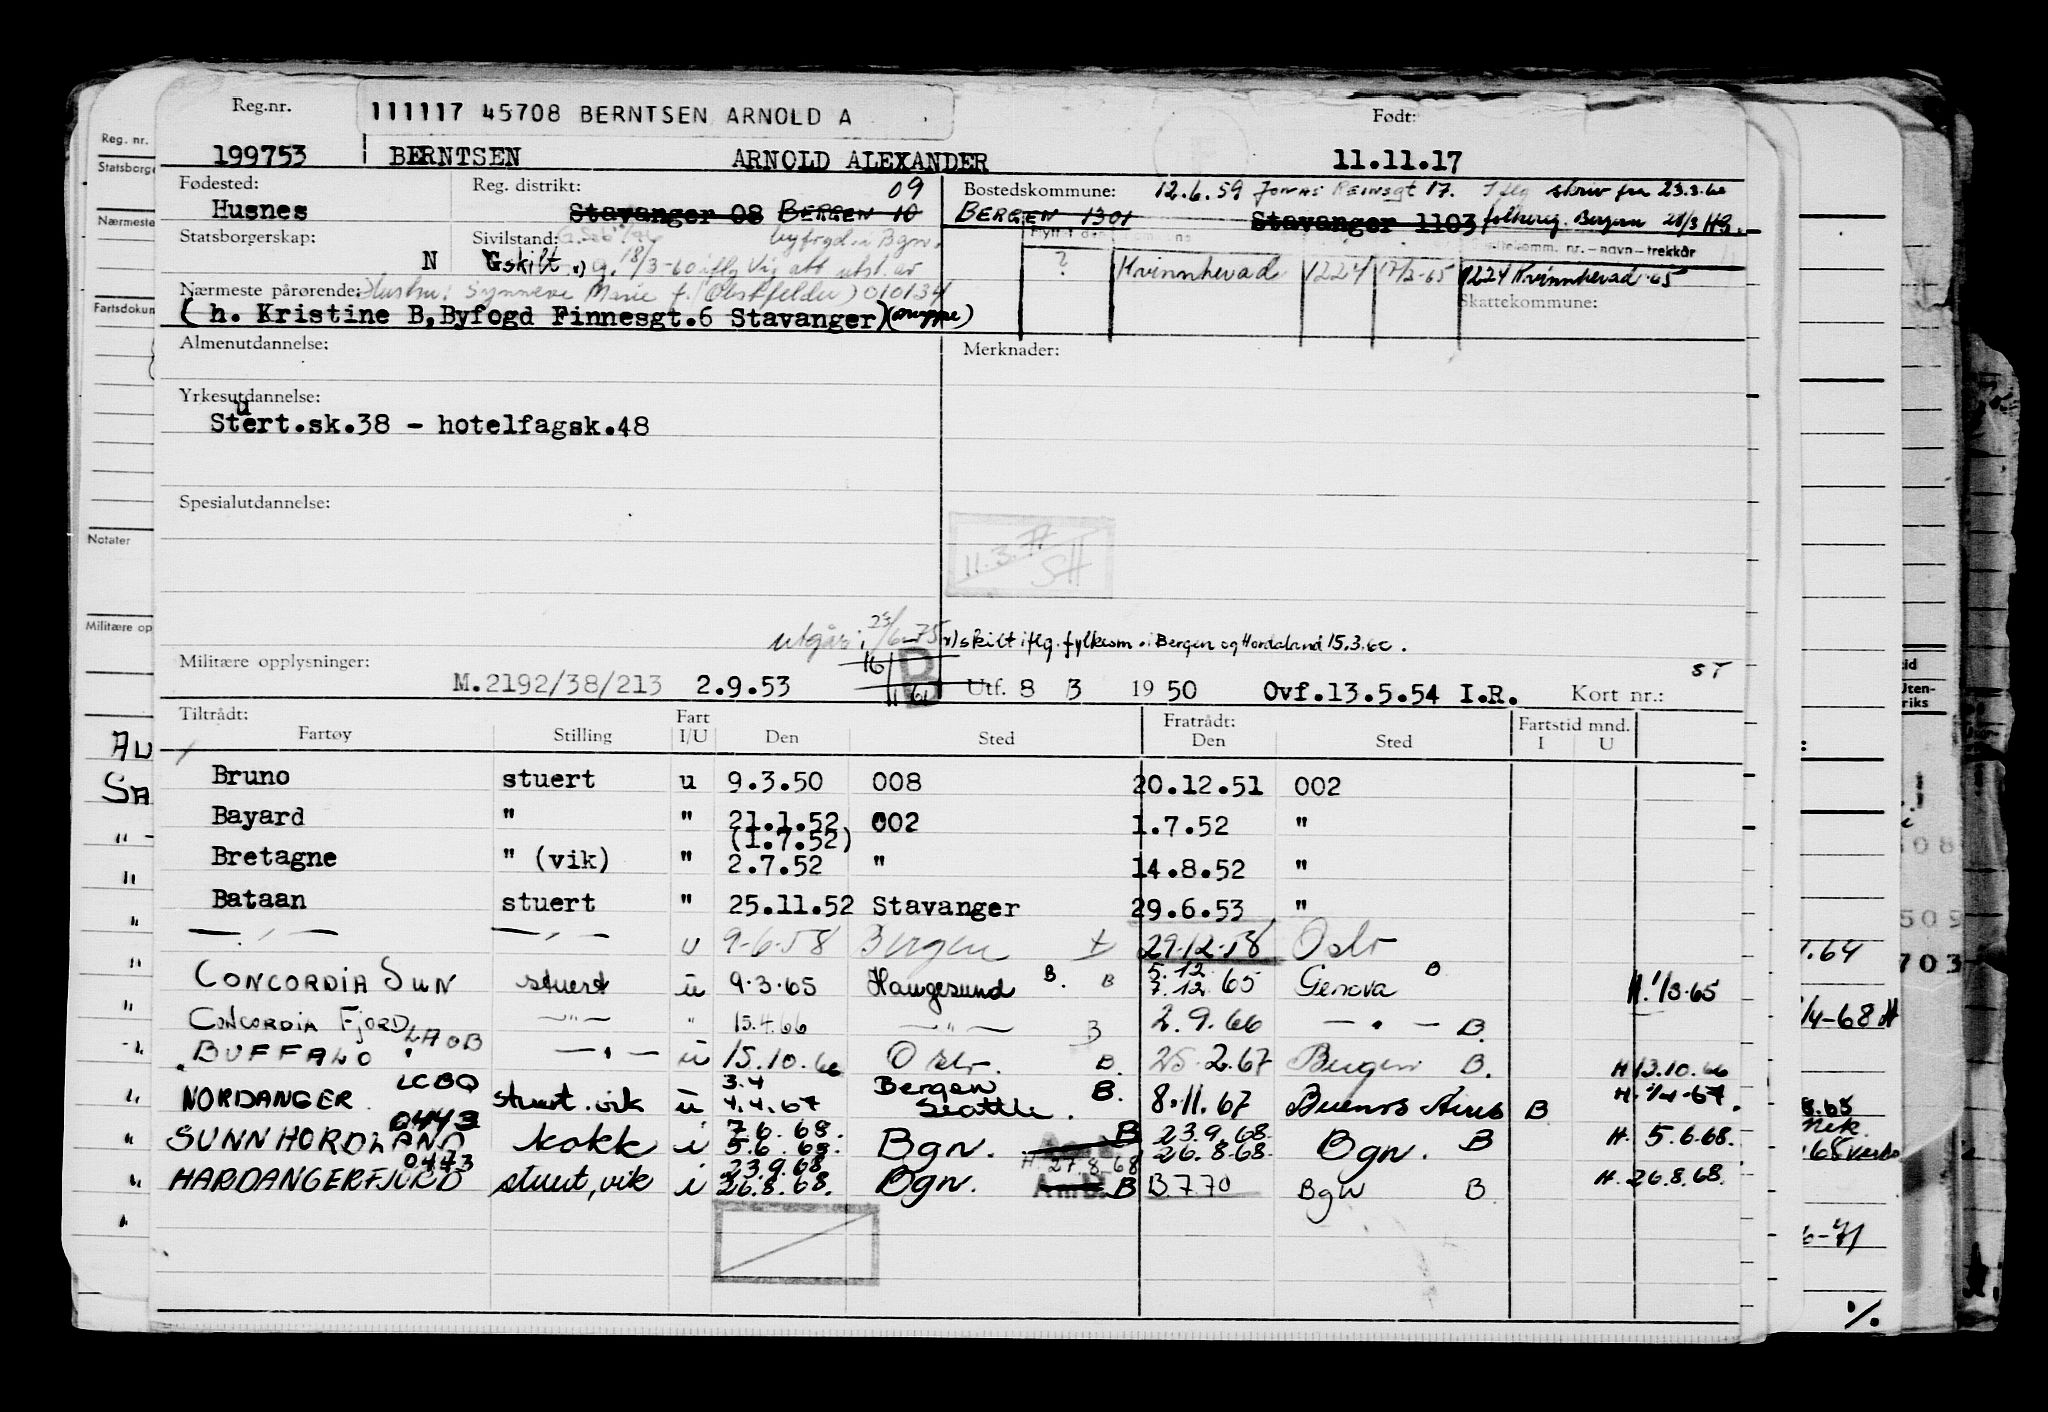 Reg.nr. 111117 45708 BERNTSEN ARNOLD A Født:
199753 BERNTSEN ARNOLD ALEXANDER 11.11.17
Fødested: Reg. distrikt: 09 Bostedskommune: 12.6.59 JONAS REINSGT 17. Iflg skriv fra 23.3.60
Husnes Stavanger 08 BERGEN 10 BERGEN 1301 Stavanger 1103 folkereg. Bergen 28/3 HG.
Statsborgerskap: Sivilstand: byfogd i Bgn.
N Gskilt x) g. 18/3-60 iflg Vig att utst. av ? Kvinnherad 1224 17/2-65 1224 Kvinnherad 65
Nærmeste pårørende: Hustru: Synneve Marie f. Obstfelder) 010134 Skattekommune:
( h. Kristine B, Byfogd Finnesgt.6 Stavanger)
Almenutdannelse: Merknader:
Yrkesutdannelse:
Stuert.sk.38 - hotelfagsk.48
Spesialutdannelse:
11.3.77
SH
utgår: 25/6-75 x) skilt iflg. fylkesm. i Bergen og Hordaland 15.3.60.
Militære opplysninger: 16 B ST
M.2192/38/213 2.9.53 1 61 Utf. 8 3 1950 Ovf.13.5.54 I.R. Kort nr.:
Tiltrådt: Fart Fratrådt: Fartstid mnd.
Fartøy Stilling I/U Den Sted Den Sted I U
Bruno stuert u 9.3.50 008 20.12.51 002
Bayard " " 21.1.52 002 1.7.52 "
(1.7.52)
Bretagne " (vik) " 2.7.52 " 14.8.52 "
Bataan stuert " 25.11.52 Stavanger 29.6.53 "
— " — — " — u 9-6-58 Bergen t 29.12.58 Oslo
CONCORDIA SUN stuert u 9.3.65 Haugesund B. B 5.12 7.12.65 Genova B H. 1/3-65
CONCORDIA FJORD LAOB — " — " 15.4.66 — " — B 2.9.66 — " — B.
BUFFALO — " — u 15.10.66 Oslo. B. 25.2.67 Bergen B. H 13.10.66
LCBQ 3.4 Bergen
NORDANGER stuert.vik u 4.4.67 Seattle. B. 8.11.67 Buenos Aires B H. 1/4-67.
0443 7.6.68. 23.9.68.
SUNNHORDLAND kokk i 5.6.68. Bgn. B 26.8.68. Bgn. B H. 5.6.68.
0473 23.9.68 H 27.8.68
HARDANGERFJORD stuert, vik i 26.8.68. Bgn. B B.770 Bgn B H. 26.8.68.
Reg. nr.
Statsborge
Nærmeste
Fartsdokum
Notater
Militære op
AU
SA
Uten-
riks
508
509
703
.64
/4-68 H
6-71